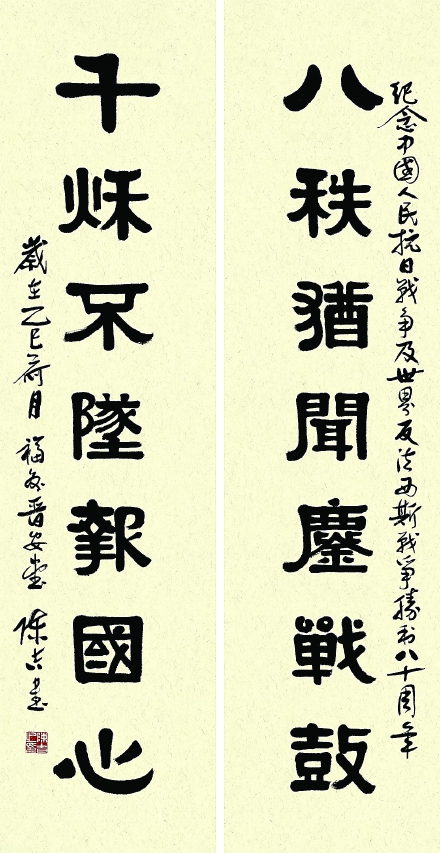 紀念中國人民抗日戰争及世界反法西斯戰爭勝利八十周年
八秩猶聞鏖戰鼓
千秌不墜報國心
歲在乙巳荷月 福安晋安 陳吉書